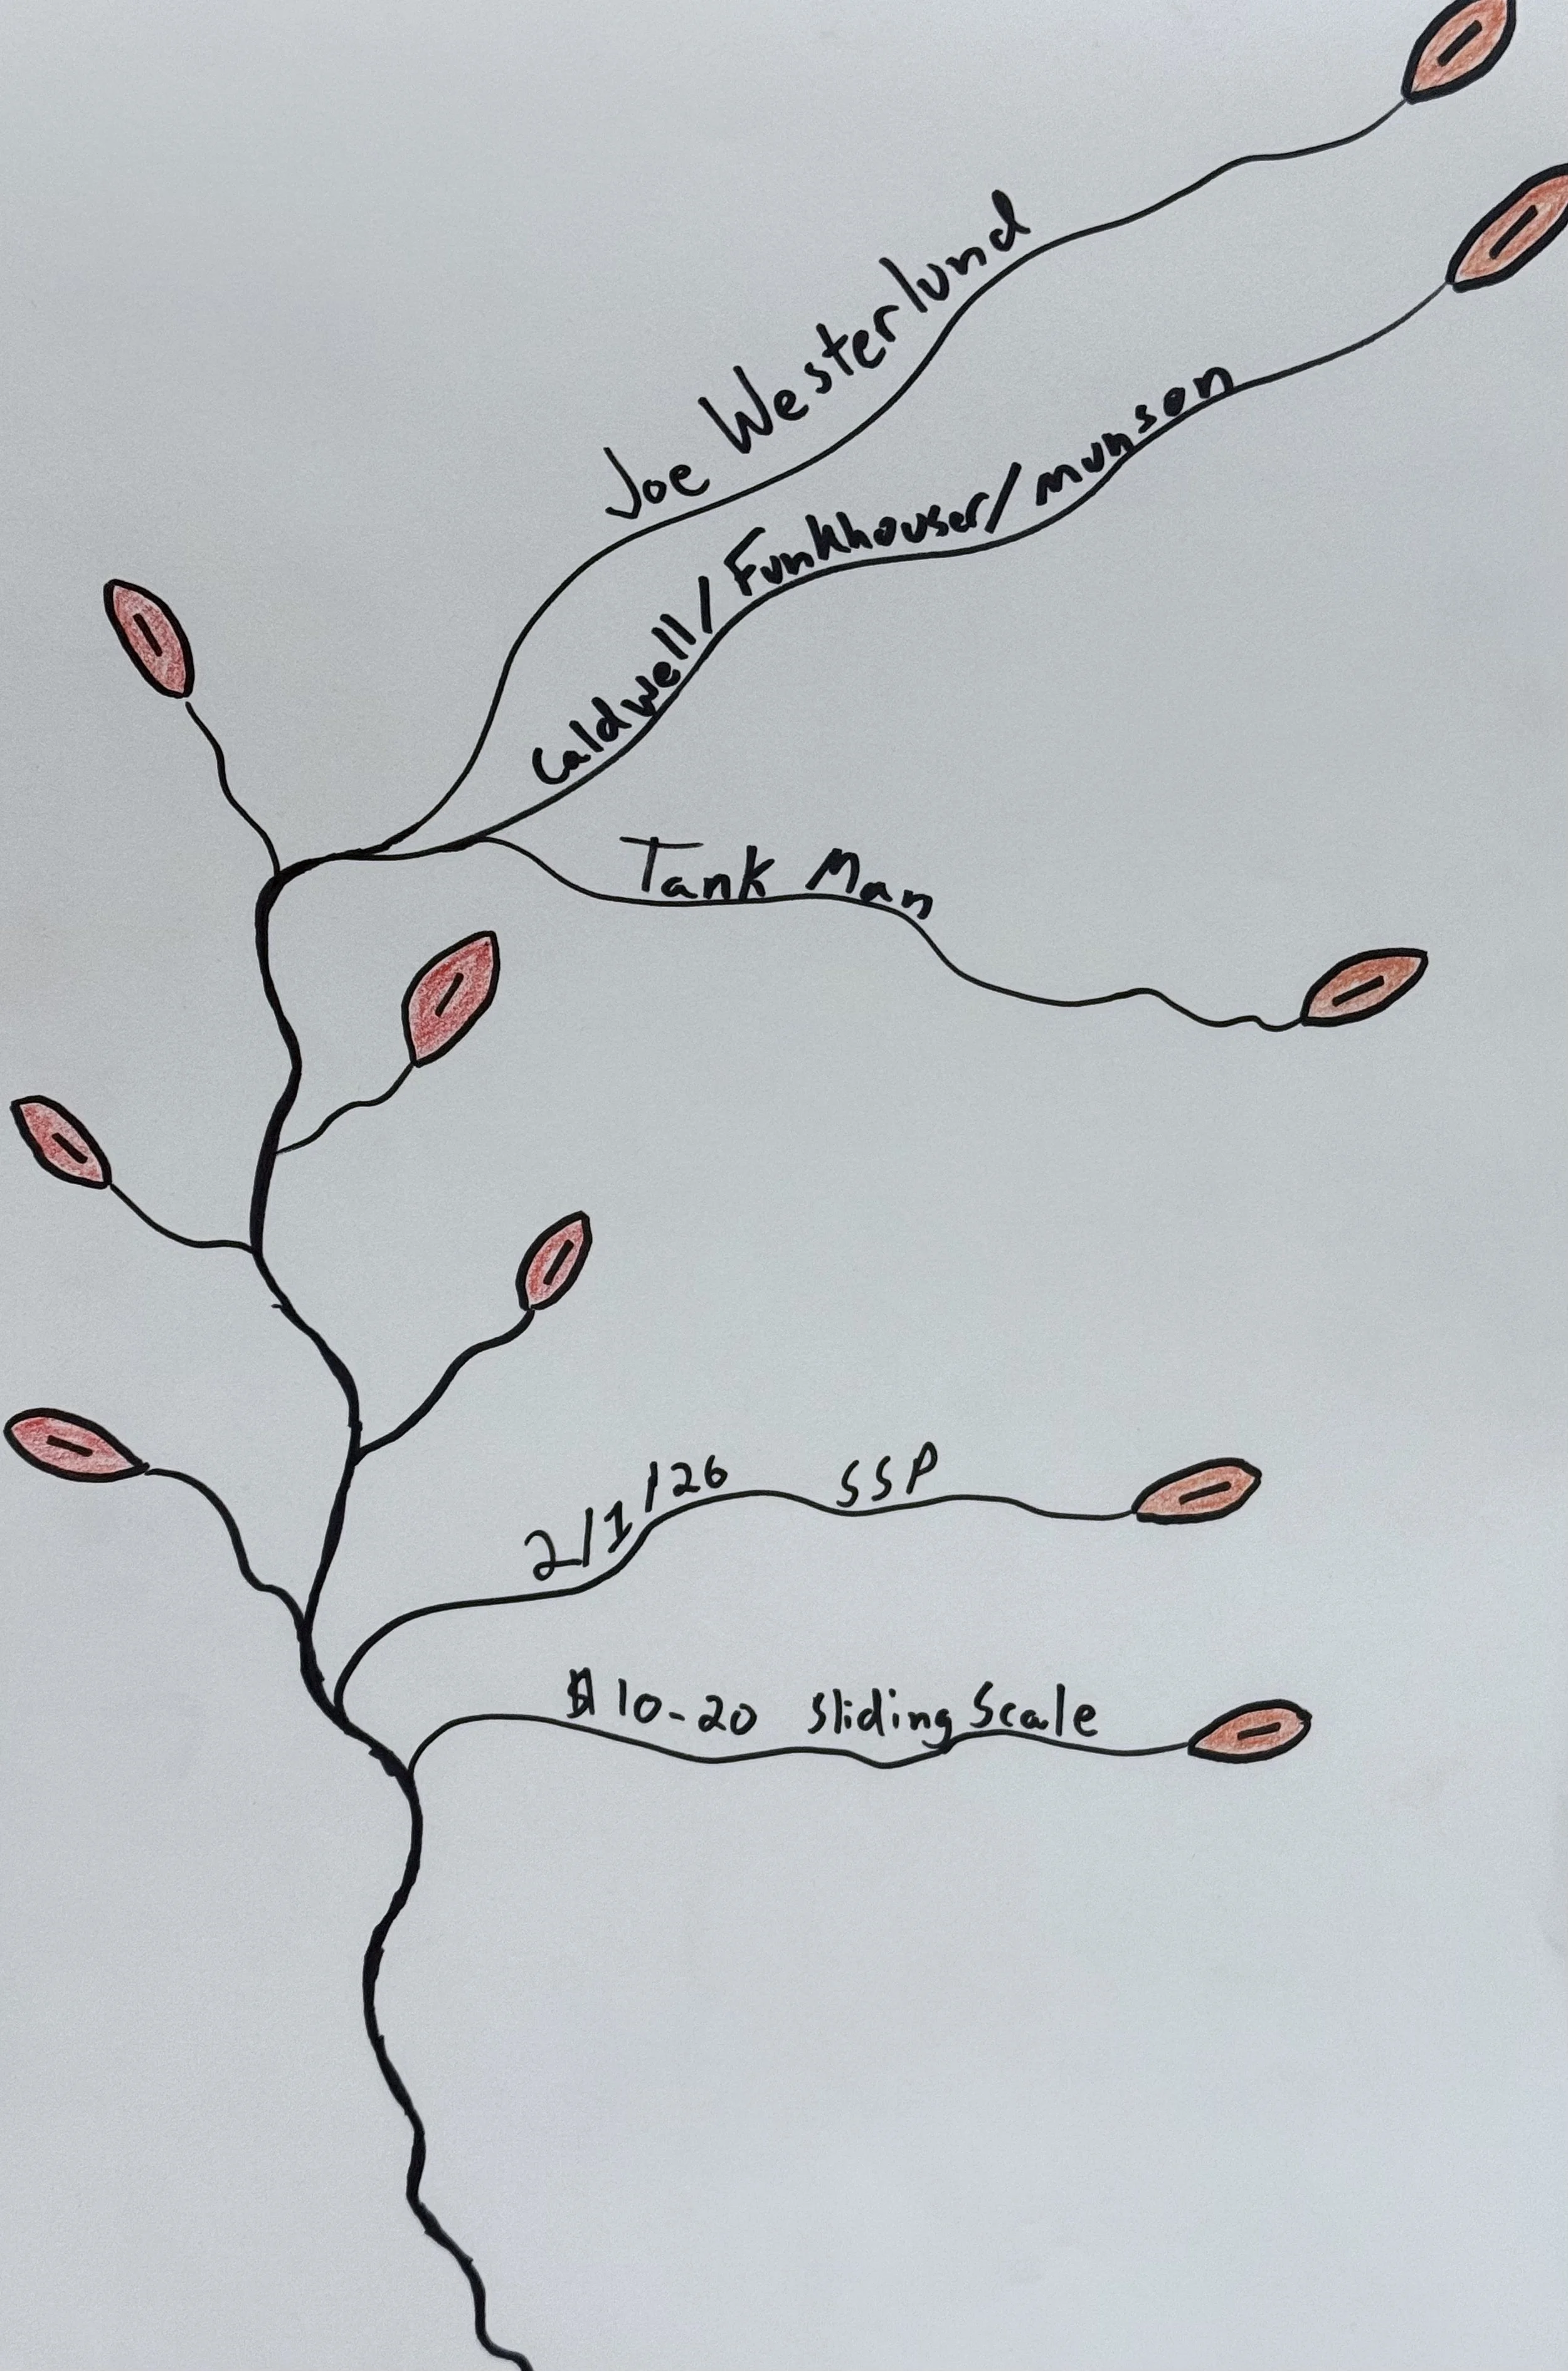 Joe Westerlund
Caldwell/Funkhouser/munson
Tank Man
2/1/26 SSP
$10-20 Sliding Scale